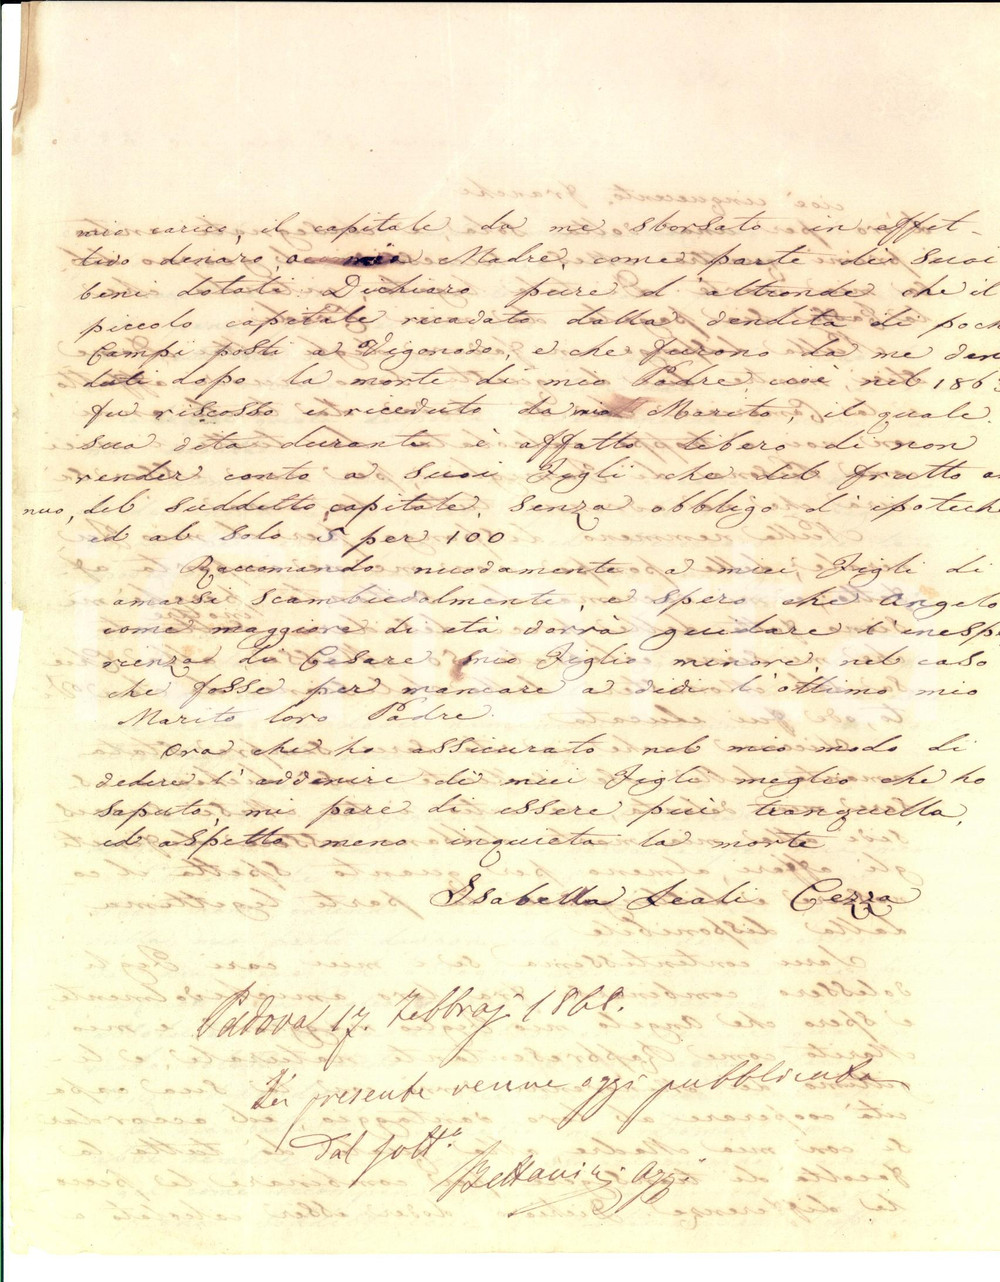 mio carico, il capitale da me sborsato in effet-
tivo denaro, a mia Madre, come parte dei suoi
beni dotali. Dichiaro pure d'altronde che il
piccolo capitale ricavato dalla vendita di poch
Campi posti a Vigonovo, e che furono da me ven
duti dopo la morte di mio Padre, cioè nel 1863
fu riscosso e ricevuto da mio Marito, il quale
sua vita durante è affatto libero di non
render conto a suoi Figli che del frutto an
nuo, del suddetto capitale, senza obbligo d'ipoteche
ed al solo 5 per 100
Raccomando nuovamente a miei Figli di
amarsi scambievolmente, e spero che Angelo
come maggiore di età vorrà guidare l'inespe
rienza di Cesare mio Figlio minore, nel caso
che fosse per mancare a vivi l'ottimo mio
Marito loro Padre.
Ora che ho assicurato nel mio modo di
vedere l'avvenire di miei Figli meglio che ho
saputo, mi pare di essere più tranquilla,
ed aspetto meno inquieta la morte
Isabella Leali Cezza
Padova 17. Febbraj 1868.
Il presente venne oggi pubblicato
dal sott.º